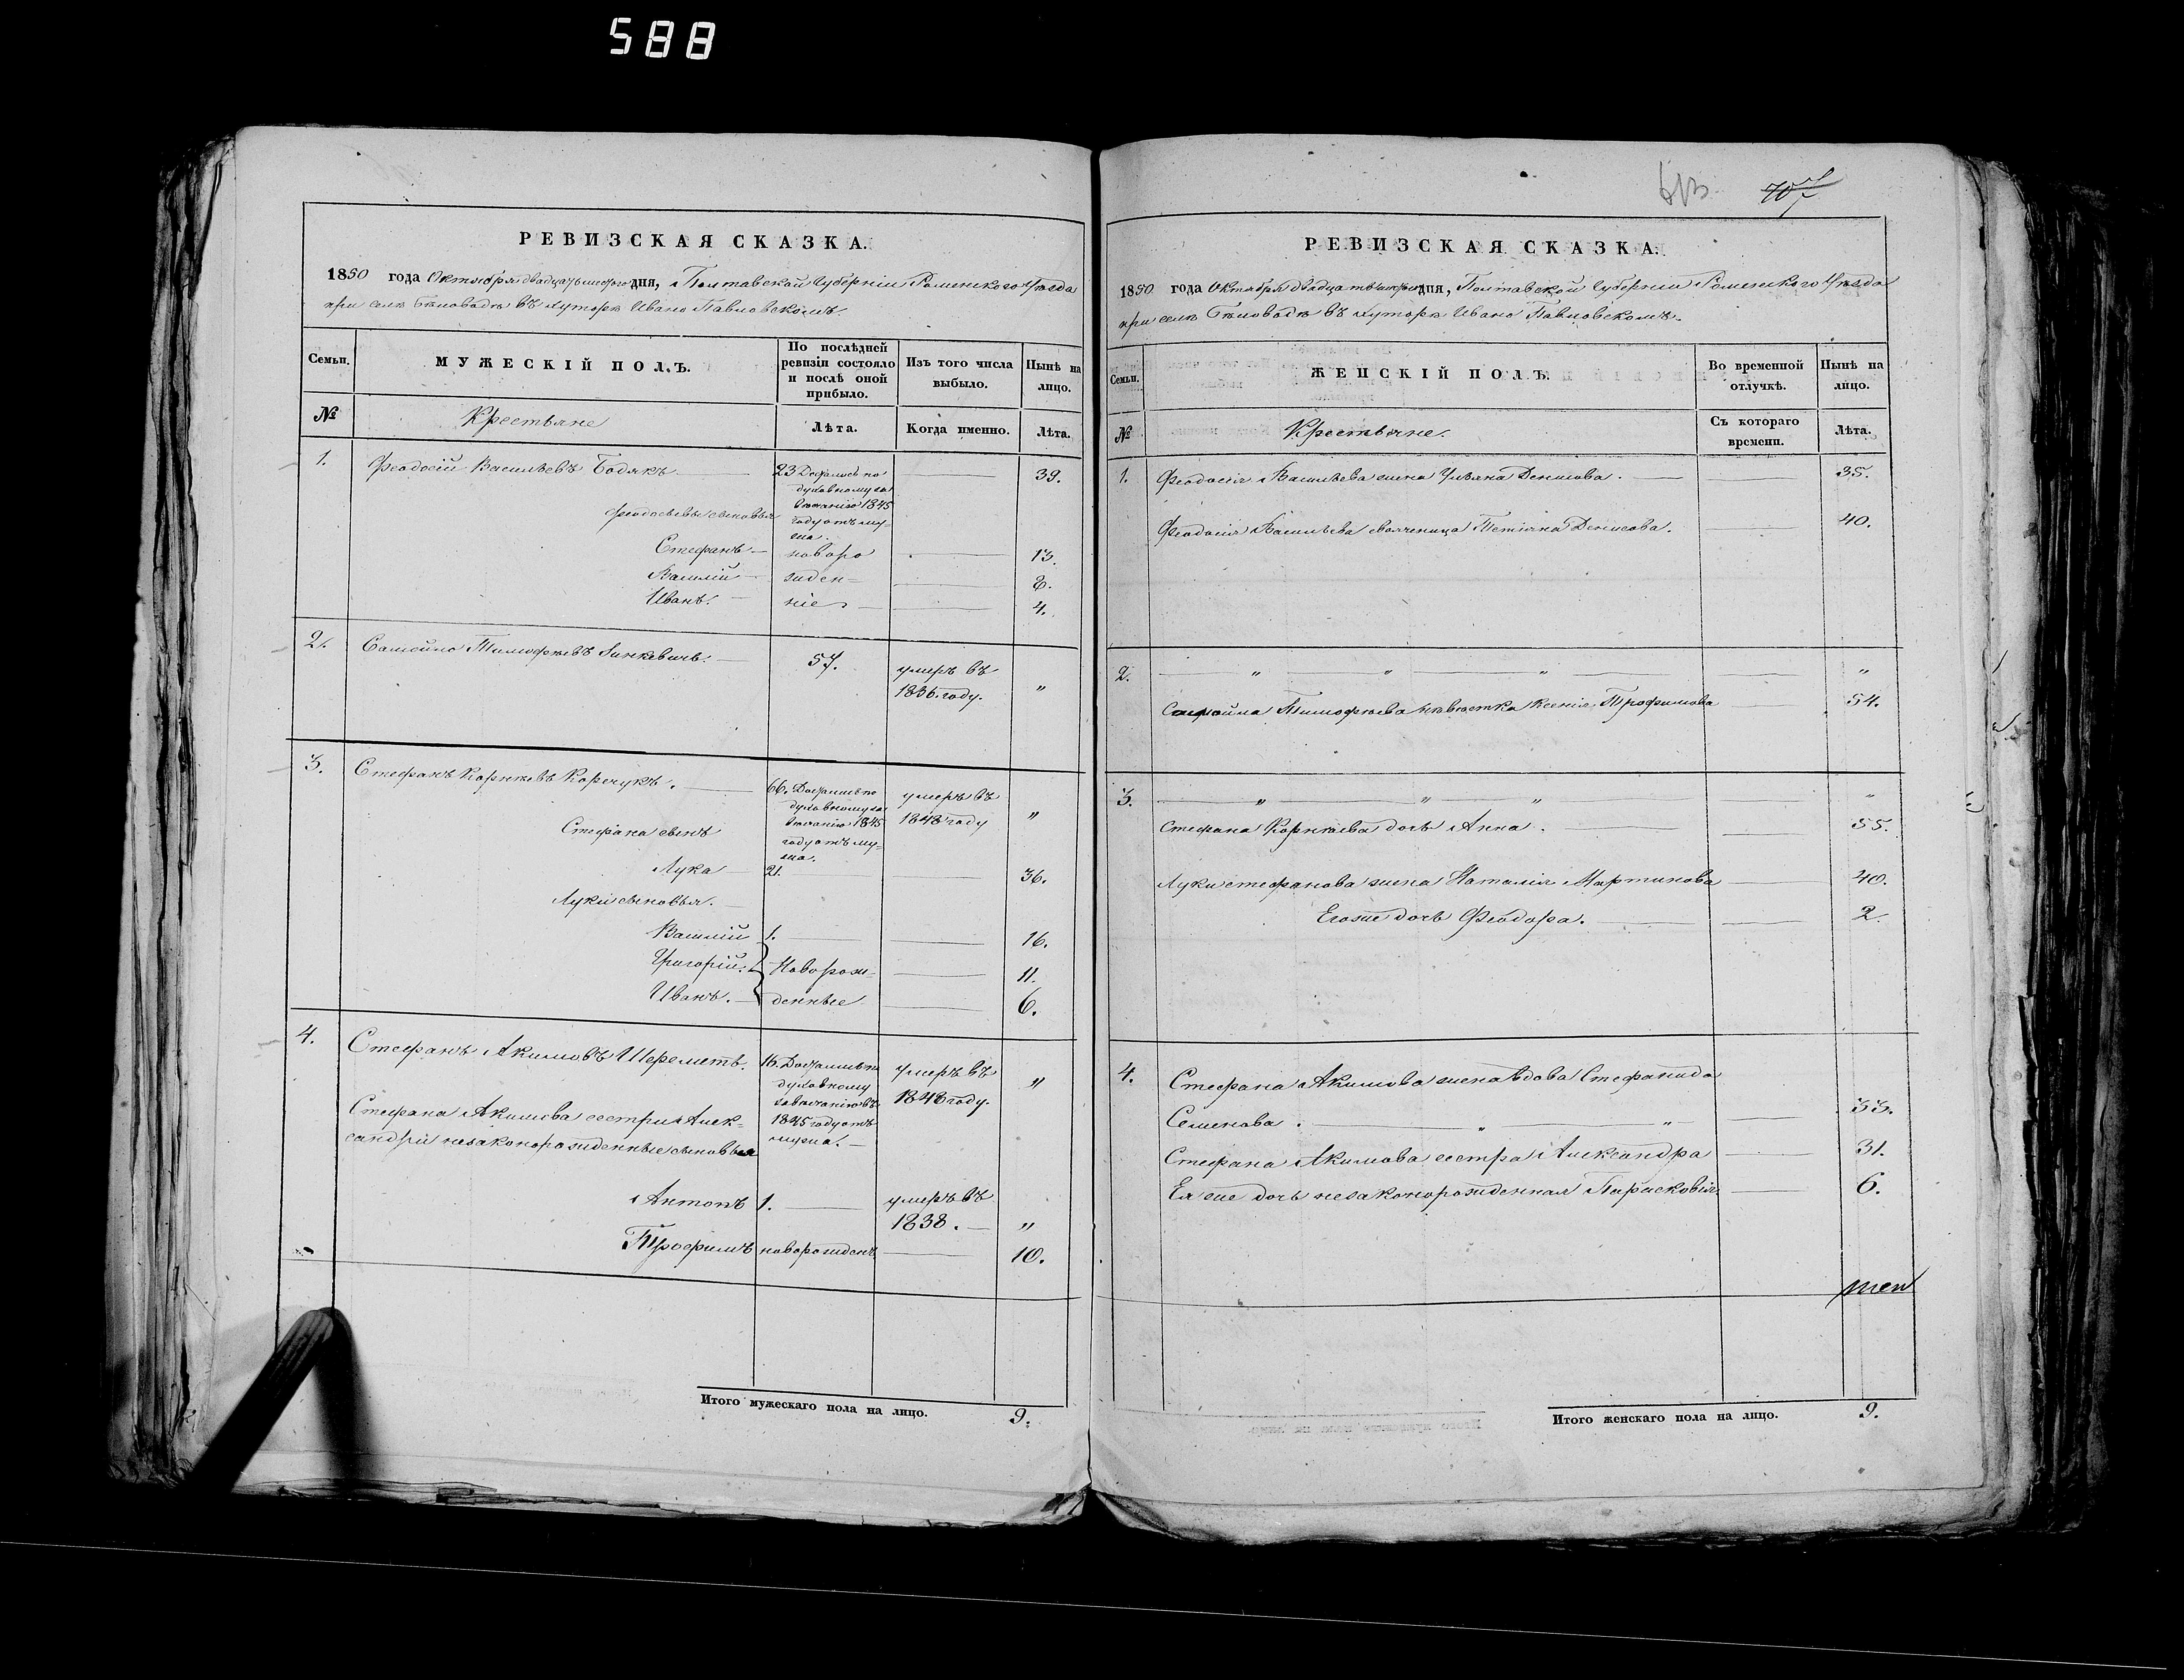 588
РЕВИЗСКАЯ СКАЗКА.
1850 года Октября двадцать шестого дня, Полтавской Губерніи Роменского Уѣзда
при селѣ Бѣловодѣ въ хуторѣ Ивано Павловскомъ.
Семьи.
МУЖЕСКІЙ ПОЛЪ.
По послѣдней
ревизіи состояло
и послѣ оной
прибыло.
Изъ того числа
выбыло.
Нынѣ на
лицо.
№
Крестьяне
Лѣта.
Когда именно.
Лѣта.
1. Феодосій Васильевъ Бодякъ 23 Досталисьпо 39.
духовному за
вѣщанію 1845
Феодосьевы сыновья году отъ му-
жа.
Стефанъ. новоро 13.
Василій жден- 8.
Иванъ. ніе 4.
2. Самойло Тимофѣевъ Зинкевичъ. 57. умеръ въ "
1836. году.
3. Стефанъ Корнѣевъ Корчукъ. 66. Досталисьпо умеръ въ "
духовному за 1848 году
вѣщанію 1845
Стефана сынъ году отъ му-
жа.
Лука 21. 36.
Луки сыновья.
Василій 1. 16.
Григорій. Новорож- 11.
Иванъ. денные 6.
4. Стефанъ Акимовъ Шереметъ. 16. Досталисьпо умеръ въ "
духовному 1848 году.
завѣщанію въ
Стефана Акимова сестры Алек- 1845 году отъ
сандріи незаконорожденные сыновья мужа.
Антонъ 1. умеръ въ
1838. "
Трофимъ новорожденъ 10.
Итого мужескаго пола на лицо. 9.
613 707
РЕВИЗСКАЯ СКАЗКА.
1850 года Октября двадцать шестого дня, Полтавской Губерніи Роменского Уѣзда
при селѣ Бѣловодѣ въ хуторѣ Ивано Павловскомъ.
Семьи.
ЖЕНСКІЙ ПОЛЪ.
Во временной
отлучкѣ.
Нынѣ на
лицо.
№
Крестьяне.
Съ котораго
времени.
Лѣта.
1. Феодосія Васильева жена Ульяна Денисова. 35.
Феодосія Васильева своячница Тетіяна Денисова. 40.
2. " " " "
Самойла Тимофѣева невѣстка Ксенія Трофимова 54.
3. " " " "
Стефана Корнѣева дочь Анна. 55.
Луки стефанова жена Наталія Мартинова 40.
Егоже дочь Феодора. 2.
4. Стефана Акимова жена вдова Стефанида
Семенова. " " 33.
Стефана Акимова сестра Александра 31.
Ея же дочь незаконорожденная Парисковія. 6.
Итого женскаго пола на лицо. 9.